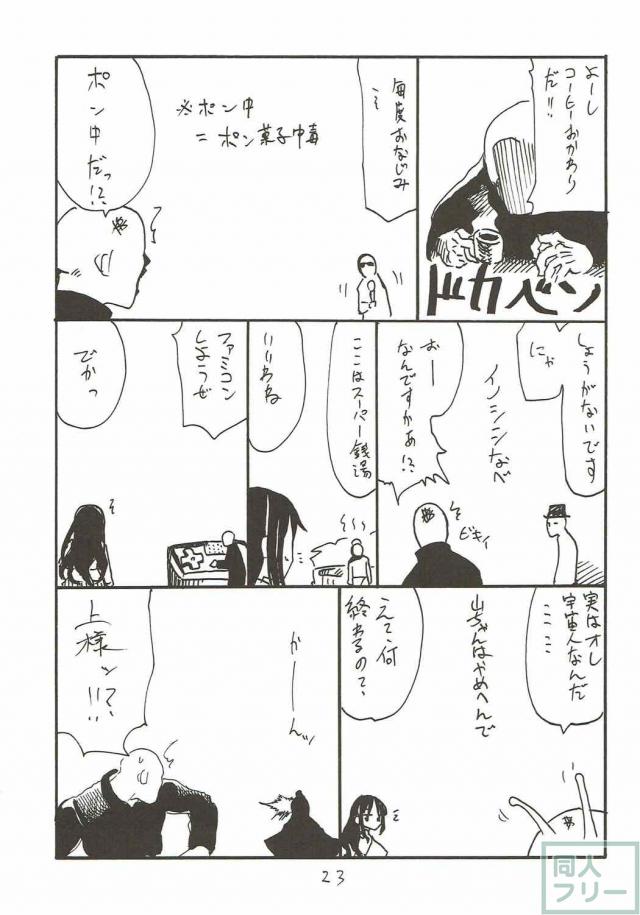 よーし
コーヒーおかわり
だ!!
ドカベン
毎度おなじみ
※ポン中
=ポン菓子中毒
ポン中だっ!?
しょうがないです
にゃ
イノシシなべ
おー
なんですかあ!?
ビキィ
ここはスーパー銭湯
いいわね
ファミコン
しようぜ
でかっ
実はオレ
宇宙人なんだ
ここここ
山ちゃんはやめへんで
えて、何
終わるの?
かーーんッ
上様ッ!!?
23
同人
フリー